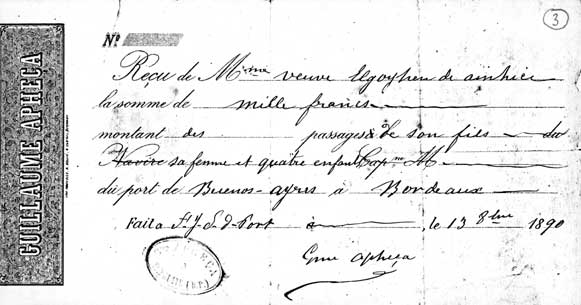 3
GUILLAUME APHEÇA
Nº
Reçu de Mme veuve de ainhice
la somme de mille francs
montant des passages de son fils sa
Navire sa femme et quatre enfants Capne M
du port de Buenos-ayres à Bordeaux
Fait a St J. P. d. Port à , le 13 8bre 1890
Gme Apheça